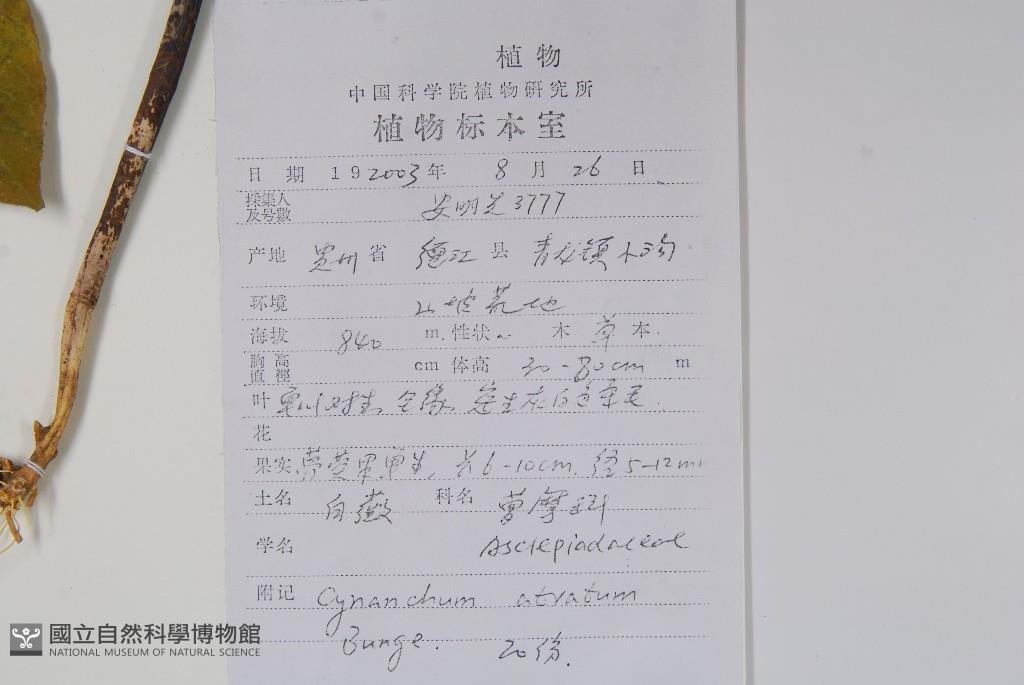 植 物
中国科学院植物研究所
植物标本室
日 期 19 2003 年 8 月 26 日
採集人
及号數 安明先 3777
产地 贵州 省 德江 县 青龙镇
环境 山坡荒地
海拔 840 m. 性状 木 草 本.
胸高
直徑 cm 体高 30-80cm m
叶 单叶对生, 全缘, 密生灰白色
花
果实 蓇葖果单生, 长6-10cm. 径5-12mm
土名 白薇 科名 萝摩科
学名 Asclepiadaceae
附记 Cynanchum atratum
Bunge. 20份.
國立自然科學博物館
NATIONAL MUSEUM OF NATURAL SCIENCE